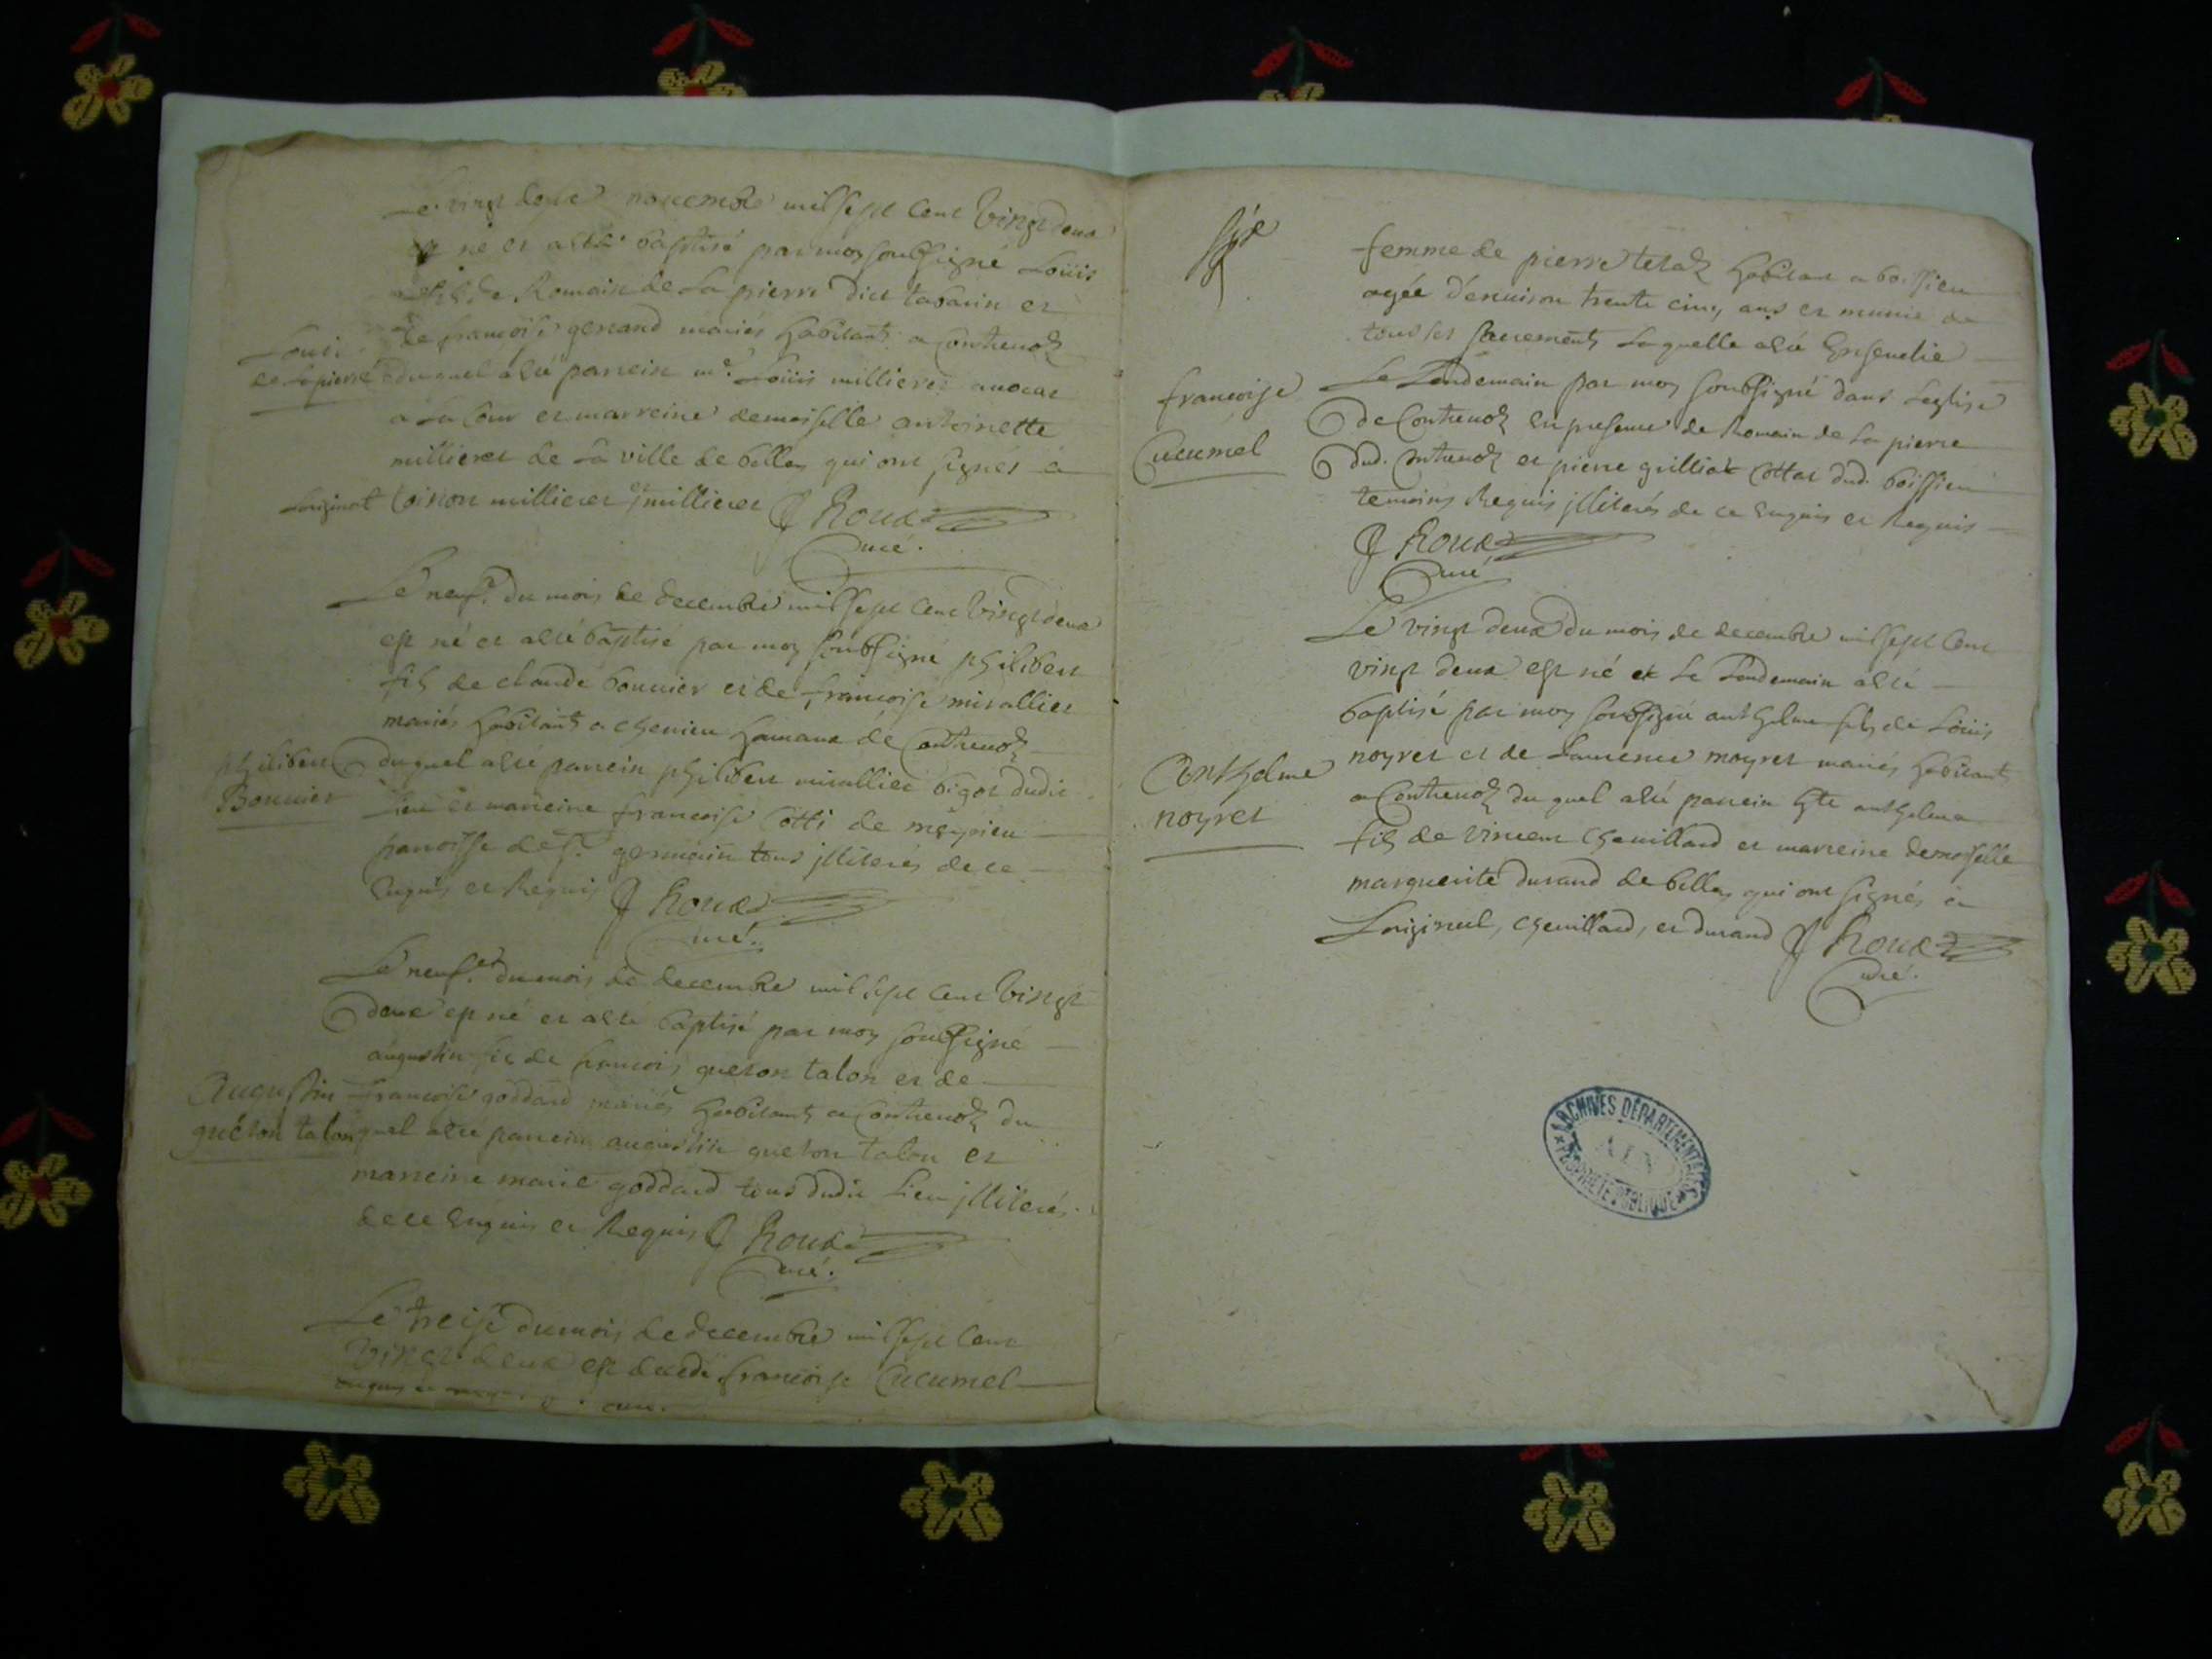 Le vingt de novembre mil sept cent vingt deux
est né et a eté baptisé par moy soubsigné Loüis
fils de Romain de La pierre dict tabarin et
de françoise genand mariés habitants a Contrevoz
Louis de Lapierre
duquel a eté parrein mr. Loüis millieret avocat
a La Cour et marreine demoiselle antoinette
millieret de La ville de belley qui ont signés a
Loriginal toinon millieret et millieret J Roux
curé.
Le neuf.e du mois de decembre mil sept cent vingt deux
est né et a eté baptisé par moy soubsigné philibert
fils de claude bonnier et de francoise mirallier
mariés habitants a chemieu hameau de Contrevoz
philibert Bonnier
duquel a eté parrein philibert mirallier bigot dudit
lieu et marreine francoise Cotti de meypieu
parroisse de st. germain tous illiterés de ce
Enquis et Requis J Roux
curé.
Le neuf.e du mois de decembre mil sept cent vingt
deux est né et a eté baptisé par moy soubsigné
augustin fils de francois queton talon et de
Augustin quéton talon
francoise goddard mariés habitants a Contrevoz du
quel a eté parrein augustin queton talon et
marreine marie goddard tous dudit Lieu illiterés
de ce Enquis et Requis J Roux
curé.
Le treise du mois de decembre mil sept cent
vingt deux est decedé francoise Cucumel
femme de pierre tetaz habitant a boissieu
agée d'environ trente cinq ans et munie de
tous les sacrements Laquelle a eté Ensevelie
francoise Cucumel
Le Lendemain par moy soubsigné dans Leglise
de Contrevoz En presence de Romain de La pierre
dud. Contrevoz et pierre grilliat Cottat dud. boissieu
temoins Requis illiterés de ce Enquis et Requis
J Roux
curé
Le vingt deux du mois de decembre mil sept cent
vingt deux est né et Le Lendemain a eté
baptisé par moy soubsigné anthelme fils de Loüis
Anthelme noyret
noyret et de Laurence moyret mariés habitants
a Contrevoz du quel a eté parrein anthelme
fils de vincent chevillard et marreine demoiselle
marguerite durand de belley qui ont signés a
Loriginal, chevillard, et durand J Roux
curé.
ARCHIVES DÉPARTEMENTALES
AIN
PROPRIÉTÉ PUBLIQUE